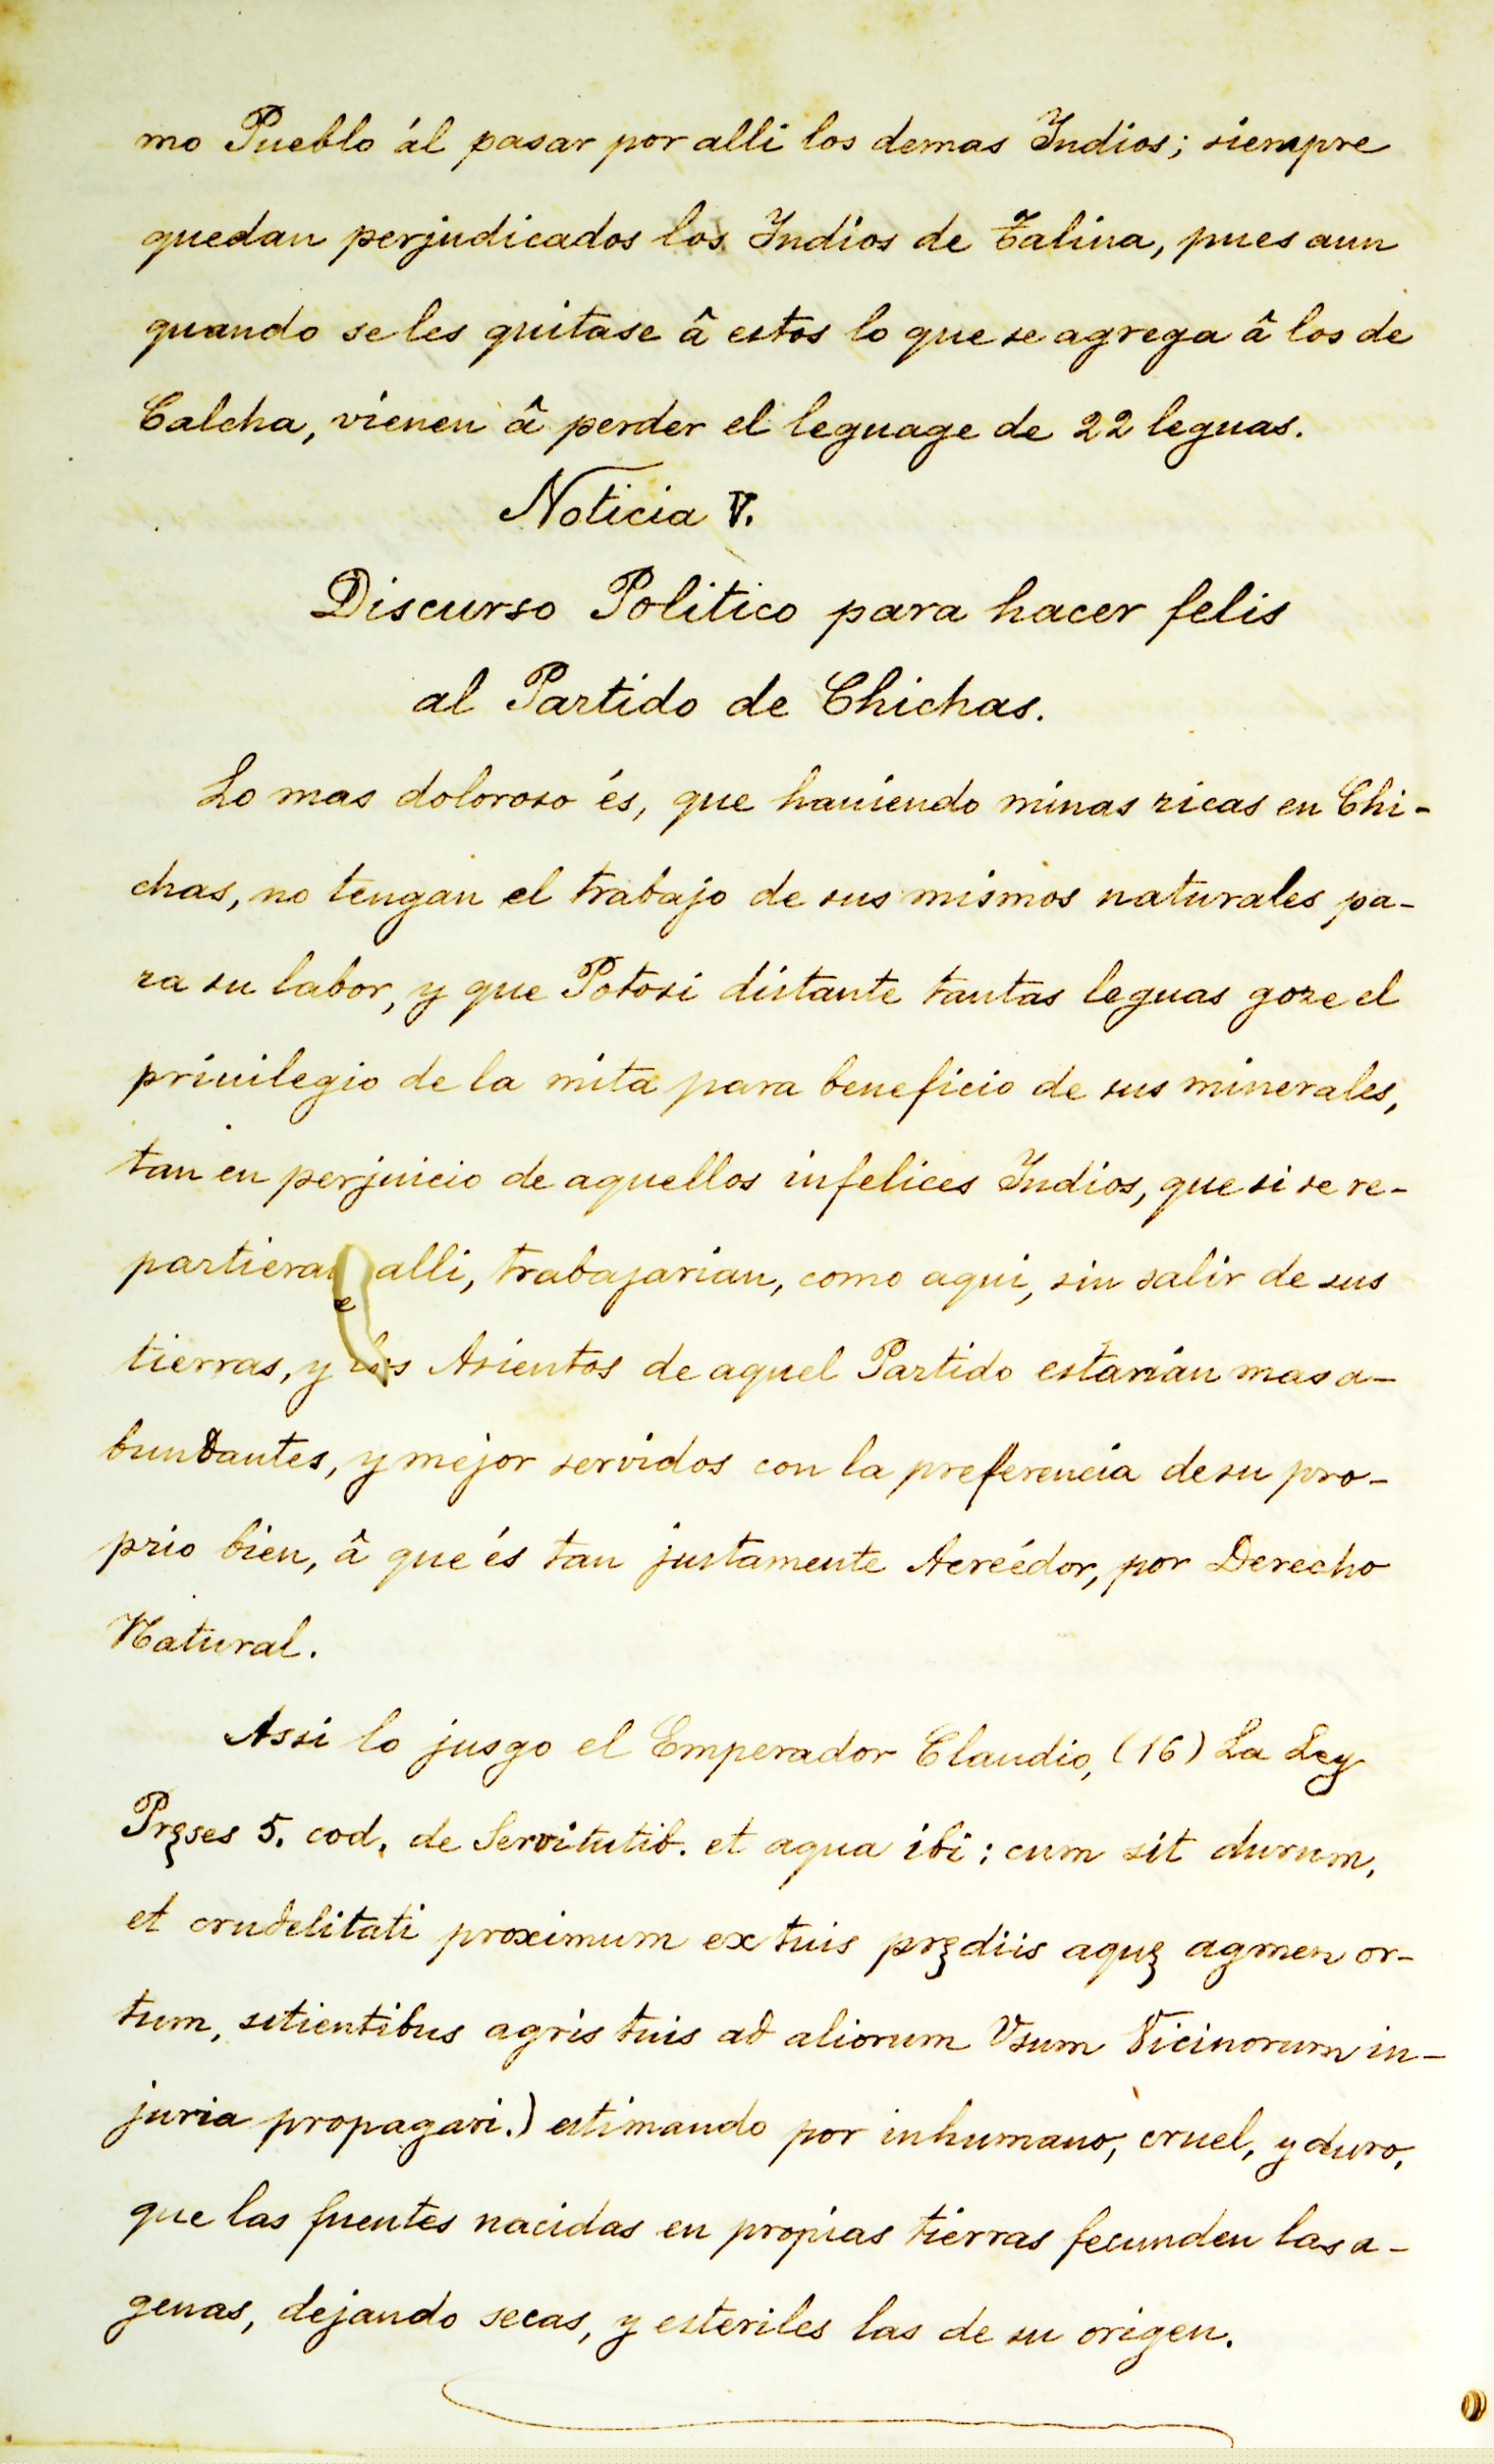 mo Pueblo ál pasar por alli los demas Indios; siempre
quedan perjudicados los Indios de Talina, pues aun
quando se les quitase â estos lo que se agrega â los de
Calcha, vienen â perder el leguage de 22 leguas.
Noticia V.
Discurso Politico para hacer felis
al Partido de Chichas.
Lo mas doloroso és, que haviendo minas ricas en Chi-
chas, no tengan el trabajo de sus mismos naturales pa-
ra su labor, y que Potosi distante tantas leguas goze el
privilegio de la mita para beneficio de sus minerales,
tan en perjuicio de aquellos infelices Indios, que si se re-
partieran alli, trabajarian, como aqui, sin salir de sus
tierras, y los Asientos de aquel Partido estarian mas a-
bundantes, y mejor servidos con la preferencia de su pro-
prio bien, â que és tan justamente Acreédor, por Derecho
Natural.
Assi lo jusgo el Emperador Claudio, (16) La Ley
Pręses 5. cod. de Servitutib. et aqua ibi: cum sit durum,
et crudelitati proximum ex tuis prędiis aquę agmen or-
tum, sitientibus agris tuis ad aliorum Vsum Vicinorum in-
juria propagari.) estimando por inhumano, cruel, y duro,
que las fuentes nacidas en propias tierras fecunden las a-
genas, dejando secas, y esteriles las de su origen.